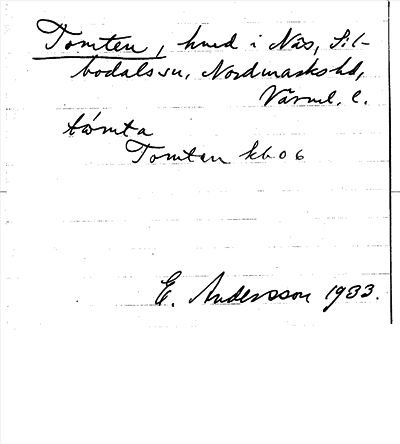 Tomten, hmd i Näs, Sil-
bodals sn, Nordmarks hd,
Värml. l.
tå̀mta
Tomten kb 06
E. Andersson 1933.